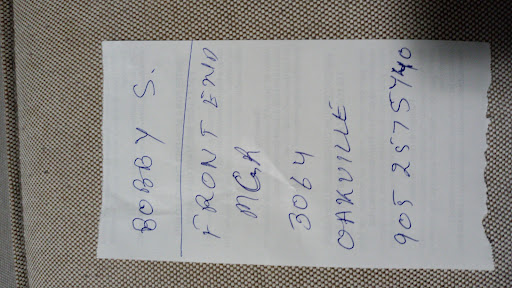 BOBBY S.
FRONT END
MGR
3064
OAKVILLE
905 257 5740